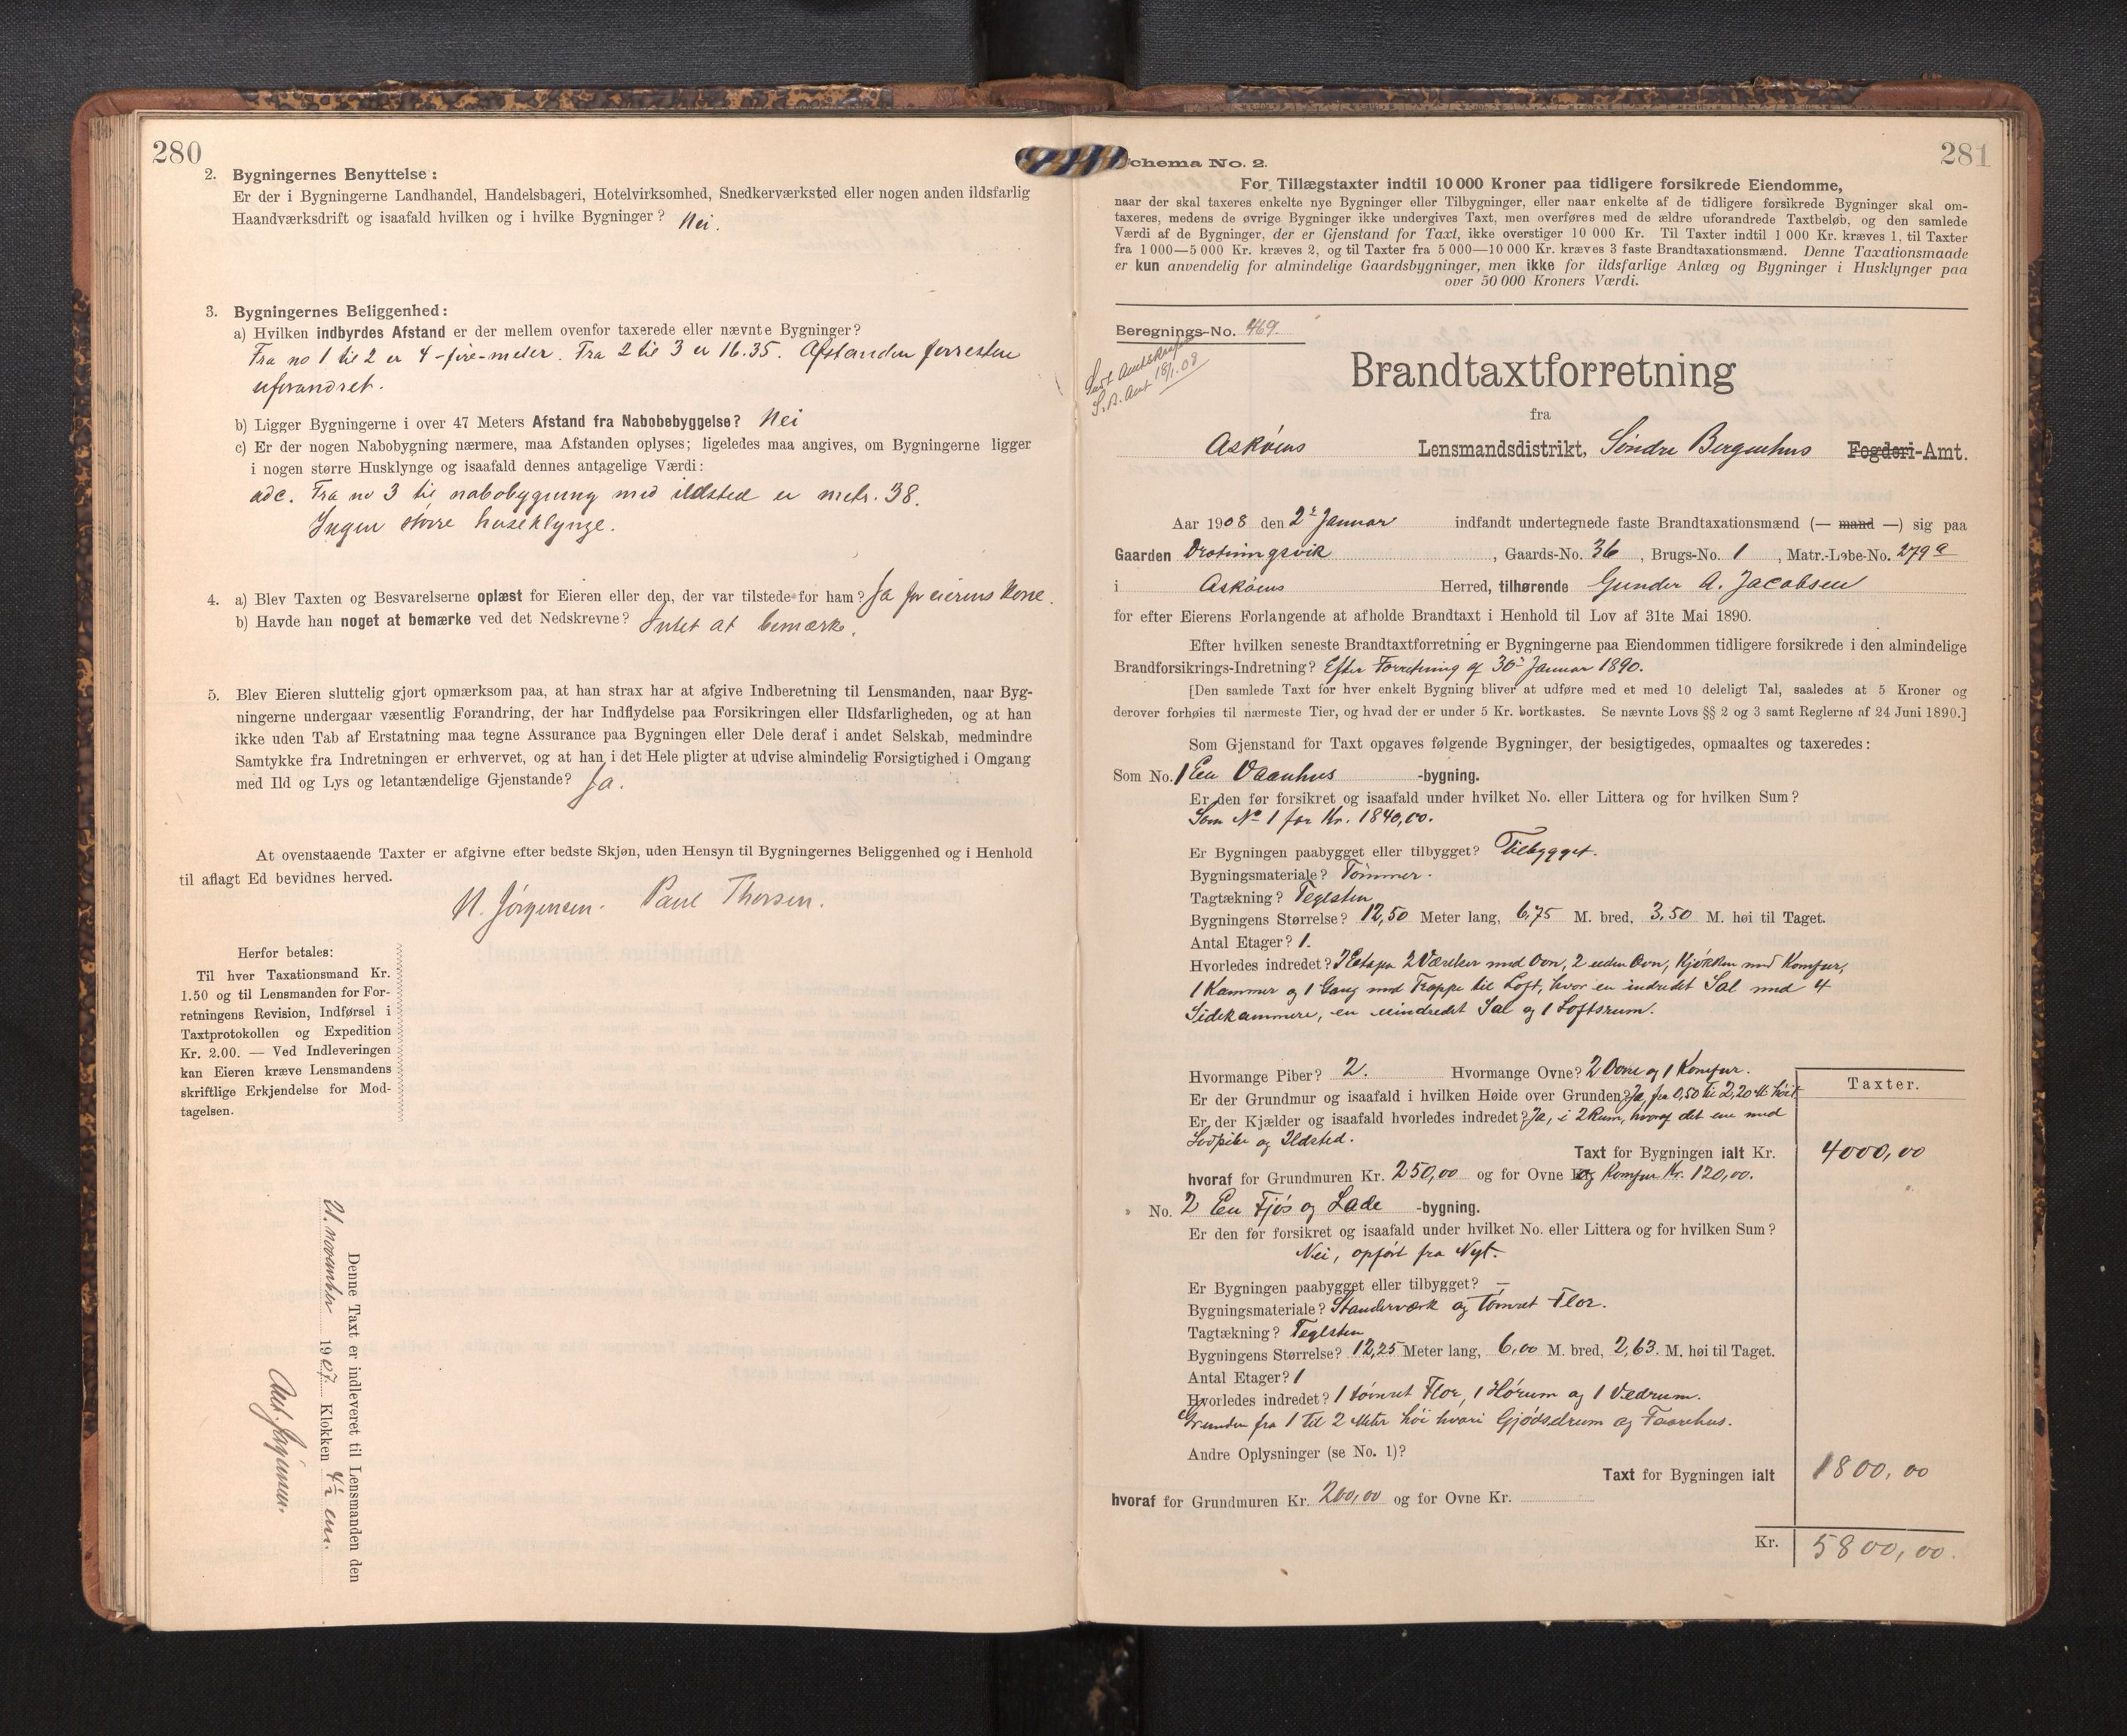 280
2. Bygningernes Benyttelse:
Er der i Bygningerne Landhandel, Handelsbageri, Hotelvirksomhed, Snedkerværksted eller nogen anden ildsfarlig
Haandværksdrift og isaafald hvilken og i hvilke Bygninger? Nei.
3. Bygningernes Beliggenhed:
a) Hvilken indbyrdes Afstand er der mellem ovenfor taxerede eller nævnte Bygninger?
Fra no 1 til 2 er 4-fire-meter. Fra 2 til 3 er 16.35. Afstanden forresten
uforandret.
b) Ligger Bygningerne i over 47 Meters Afstand fra Nabobebyggelse? Nei
c) Er der nogen Nabobygning nærmere, maa Afstanden oplyses; ligeledes maa angives, om Bygningerne ligger
i nogen større Husklynge og isaafald dennes antagelige Værdi:
ad c. Fra no 3 til nabobygning med ildsted er metr. 38.
Ingen større huseklynge.
4. a) Blev Taxten og Besvarelserne oplæst for Eieren eller den, der var tilstede for ham? Ja for eierens kone.
b) Havde han noget at bemærke ved det Nedskrevne? Intet at bemærke.
5. Blev Eieren sluttelig gjort opmærksom paa, at han strax har at afgive Indberetning til Lensmanden, naar Byg-
ningerne undergaar væsentlig Forandring, der har Indflydelse paa Forsikringen eller Ildsfarligheden, og at han
ikke uden Tab af Erstatning maa tegne Assurance paa Bygningen eller Dele deraf i andet Selskab, medmindre
Samtykke fra Indretningen er erhvervet, og at han i det Hele pligter at udvise almindelig Forsigtighed i Omgang
med Ild og Lys og letantændelige Gjenstande? Ja.
At ovenstaaende Taxter er afgivne efter bedste Skjøn, uden Hensyn til Bygningernes Beliggenhed og i Henhold
til aflagt Ed bevidnes herved.
N. Jørgensen. Paul Thorsen.
Herfor betales:
Til hver Taxationsmand Kr.
1.50 og til Lensmanden for For-
retningens Revision, Indførsel i
Taxtprotokollen og Expedition
Kr. 2.00. — Ved Indleveringen
kan Eieren kræve Lensmandens
skriftlige Erkjendelse for Mod-
tagelsen.
Denne Taxt er indleveret til Lensmanden den
21. november 1907. Klokken 4½ em.
Jørgensen.
281
Schema No. 2.
For Tillægstaxter indtil 10 000 Kroner paa tidligere forsikrede Eiendomme,
naar der skal taxeres enkelte nye Bygninger eller Tilbygninger, eller naar enkelte af de tidligere forsikrede Bygninger skal om-
taxeres, medens de øvrige Bygninger ikke undergives Taxt, men overføres med de ældre uforandrede Taxtbeløb, og den samlede
Værdi af de Bygninger, der er Gjenstand for Taxt, ikke overstiger 10 000 Kr. Til Taxter indtil 1 000 Kr. kræves 1, til Taxter
fra 1 000—5 000 Kr. kræves 2, og til Taxter fra 5 000—10 000 Kr. kræves 3 faste Brandtaxationsmænd. Denne Taxationsmaade
er kun anvendelig for almindelige Gaardsbygninger, men ikke for ildsfarlige Anlæg og Bygninger i Husklynger paa
over 50 000 Kroners Værdi.
Beregnings-No. 469.
S. B. Amt 18/1.08
Brandtaxtforretning
fra
Askøens Lensmandsdistrikt, Søndre Bergenhus Fogderi-Amt.
Aar 1908 den 2. Januar indfandt undertegnede faste Brandtaxationsmænd (— mand —) sig paa
Gaarden Drotningsvik, Gaards-No. 36, Brugs-No. 1, Matr.-Løbe-No. 279a
i Askøens Herred, tilhørende Gunder A. Jacobsen
for efter Eierens Forlangende at afholde Brandtaxt i Henhold til Lov af 31te Mai 1890.
Efter hvilken seneste Brandtaxtforretning er Bygningerne paa Eiendommen tidligere forsikrede i den almindelige
Brandforsikrings-Indretning? Efter Forretning af 30. Januar 1890.
[Den samlede Taxt for hver enkelt Bygning bliver at udføre med et med 10 deleligt Tal, saaledes at 5 Kroner og
derover forhøies til nærmeste Tier, og hvad der er under 5 Kr. bortkastes. Se nævnte Lovs §§ 2 og 3 samt Reglerne af 24 Juni 1890.]
Som Gjenstand for Taxt opgaves følgende Bygninger, der besigtigedes, opmaaltes og taxeredes:
Som No. 1 En Vaanhus -bygning.
Er den før forsikret og isaafald under hvilket No. eller Littera og for hvilken Sum?
Som No 1 for Kr. 1840,00.
Er Bygningen paabygget eller tilbygget? Tilbygget.
Bygningsmateriale? Tømmer.
Tagtækning? Teglsten
Bygningens Størrelse? 12,50 Meter lang, 6,75 M. bred, 3,50 M. høi til Taget.
Antal Etager? 1.
Hvorledes indredet? I Etagen 2 Værelser med Ovn, 2 uden Ovn, Kjøkken med Komfur,
1 Kammer og 1 Gang med Trappe til Loft, hvor en indredet Sal med 4
Sidekammere, en uindredet Sal og 1 Loftsrum.
Hvormange Piber? 2. Hvormange Ovne? 2 Ovne og 1 Komfur.
Taxter.
Er der Grundmur og isaafald i hvilken Høide over Grunden? Ja, fra 0,50 til 2,20 M. høit
Er der Kjælder og isaafald hvorledes indredet? Ja, i 2 Rum, hvoraf det ene med
Sodpibe og Ildsted.
Taxt for Bygningen ialt Kr. 4000,00
hvoraf for Grundmuren Kr. 250,00 og for Ovne og Komfur Kr. 120,00.
" No. 2 En Fjøs og Lade -bygning.
Er den før forsikret og isaafald under hvilket No. eller Littera og for hvilken Sum?
Nei, opført fra Nyt.
Er Bygningen paabygget eller tilbygget? —
Bygningsmateriale? Standerværk og tømret Flor.
Tagtækning? Teglsten
Bygningens Størrelse? 12,25 Meter lang, 6,00 M. bred, 2,63. M. høi til Taget.
Antal Etager? 1
Hvorledes indredet? 1 tømret Flor, 1 Hørum og 1 Vedrum.
Grunden fra 1 til 2 Meter høi hvori Gjødselrum og Faarehus.
Andre Oplysninger (se No. 1)?
Taxt for Bygningen ialt 1800,00
hvoraf for Grundmuren Kr. 200,00 og for Ovne Kr.
Kr. 5800,00.